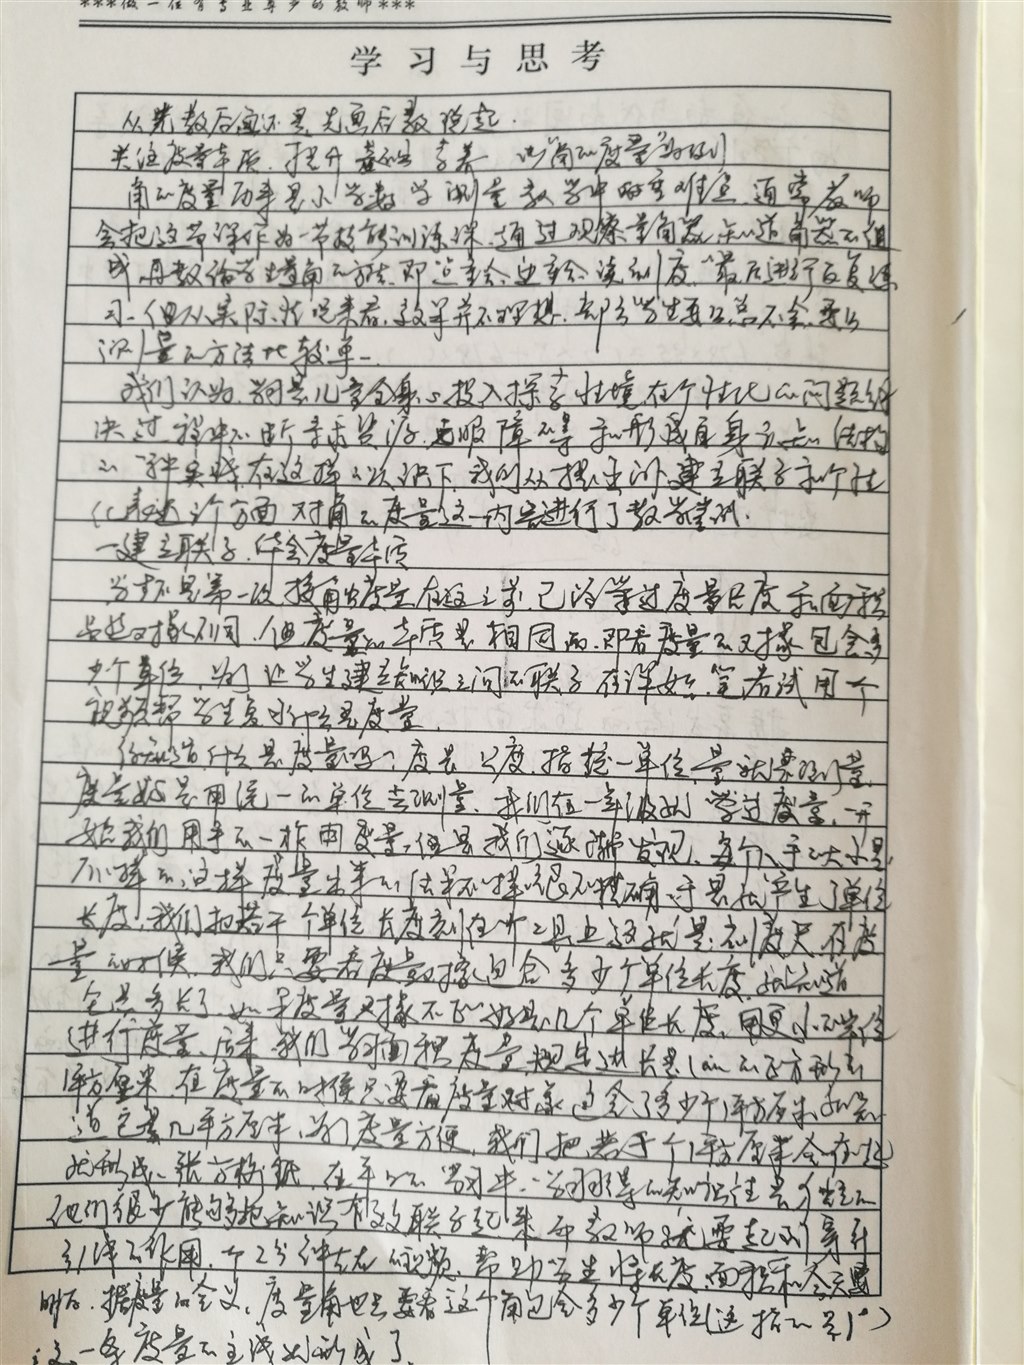 ***做一位有专业尊严的教师***
学习与思考
从先教后画还是先画后教说起.
关注度量本质,提升基础素养 以"角的度量"为例
角的度量历来是小学数学测量教学中的重难点,通常教师
会把这节课作为一节技能训练课,通过观察量角器,知道角器的组
成,再教给学生量角的方法,即"点重合,边重合,读刻度",最后进行反复练
习.但从实际状况来看,效果并不理想,部分学生要么总不会,要么
测量的方法比较单一
我们认为,学习是儿童全身心投入探索性境,在个性化的问题解
决过程中不断寻求资源,克服障碍等和形成自身认知结构
的一种实践,在这样的认识下,我们从建立联系和个性
化表达方面对角的度量这一内容进行了教学尝试.
一建立联系,体会度量本质
学生不是第一次接触度量,在这之前,已经学过度量长度和面积
虽然对象不同,但度量的本质是相同的,即看度量的对象包含多
少个单位,为了让学生建立知识之间的联系,在课始,笔者试用一个
视频帮学生复习什么是度量.
你知道什么是度量吗?度是尺度,指统一单位,量就是测量,
度量就是用统一的单位去测量,我们在一年级就学过度量,一开
始我们用手的一拃来度量,但是我们逐渐发现,每个人手的大小是
不一样的,这样度量出来的结果不一样,很不精确,于是就产生了单位
长度,我们把若干个单位长度刻在一个工具上,这就是刻度尺,在度
量的时候,我们只要看度量对象包含多少个单位长度,就知道
它是多长了,如果度量对象不正好是几个单位长度,用更小的单位
进行度量,后来,我们学习面积度量,规定边长是1cm的正方形为
1平方厘米,在度量的时候只要看度量对象包含了多少个1平方厘米,就知
道它是几平方厘米,为了度量方便,我们把若干个1平方厘米合在一起
就形成一张方格纸,在平时的学习中,学生习得的知识往往是分散的
他们很少能够把知识有效联系起来,而教师就要起到穿针
引线的作用,一个2分钟左右的视频,帮助学生将长度,面积和今天要
明白,据度量的含义,度量角也只要看这个角包含多少个单位(这指的是1°)
这一条度量的主线就形成了.